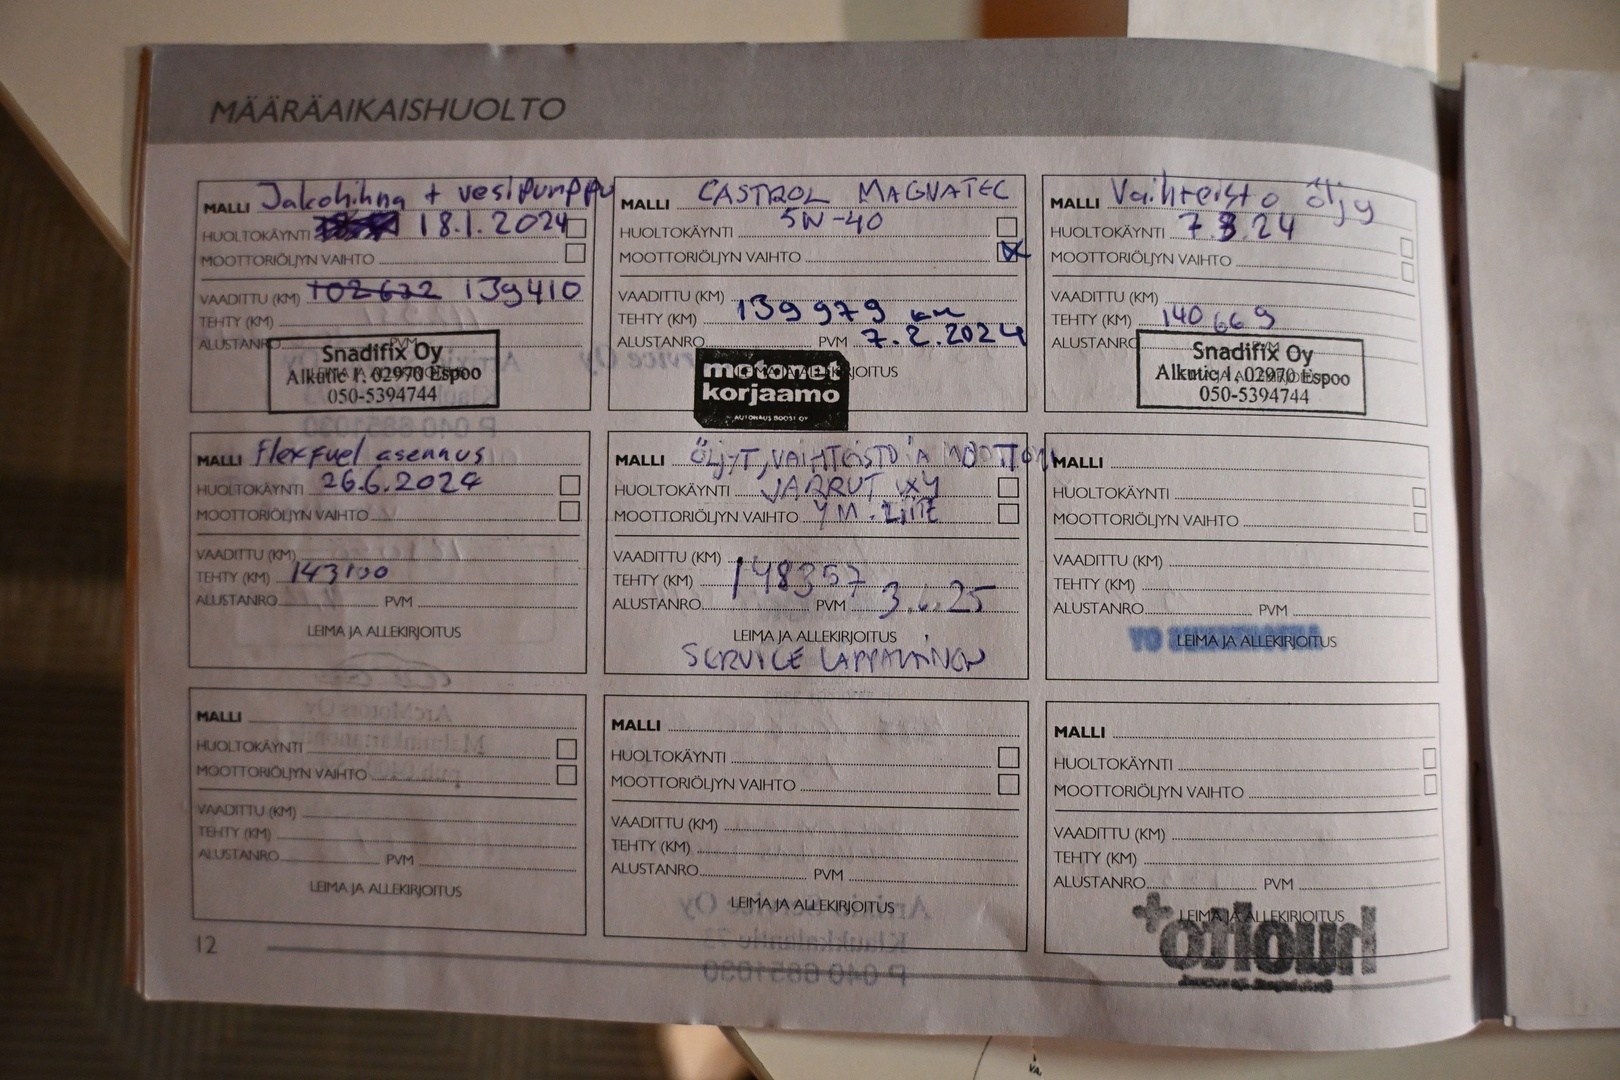 MÄÄRÄAIKAISHUOLTO
MALLI Jakohihna + vesipumppu
HUOLTOKÄYNTI 18.1.2024
MOOTTORIÖLJYN VAIHTO
VAADITTU (KM) 102632 139410
TEHTY (KM)
ALUSTANRO PVM
Snadifix Oy
Alkutie 1, 02970 Espoo
050-5394744
MALLI CASTROL MAGNATEC
HUOLTOKÄYNTI 5W-40
MOOTTORIÖLJYN VAIHTO
VAADITTU (KM)
TEHTY (KM) 139979 km
ALUSTANRO PVM 7.2.2024
LEIMA JA ALLEKIRJOITUS
motonet
korjaamo
AUTOHAUS BOOST OY
MALLI Vaihteisto öljy
HUOLTOKÄYNTI 7.3.24
MOOTTORIÖLJYN VAIHTO
VAADITTU (KM)
TEHTY (KM) 140669
ALUSTANRO PVM
Snadifix Oy
Alkutie 1, 02970 Espoo
050-5394744
MALLI Flexfuel asennus
HUOLTOKÄYNTI 26.6.2024
MOOTTORIÖLJYN VAIHTO
VAADITTU (KM)
TEHTY (KM) 143100
ALUSTANRO PVM
LEIMA JA ALLEKIRJOITUS
MALLI ÖLJYT, VAIHTEISTO JA MOOTTORI
HUOLTOKÄYNTI JARRUT
MOOTTORIÖLJYN VAIHTO YM. LIITE
VAADITTU (KM)
TEHTY (KM) 148357
ALUSTANRO PVM 3.6.25
LEIMA JA ALLEKIRJOITUS
SERVICE LAPPALAINEN
MALLI
HUOLTOKÄYNTI
MOOTTORIÖLJYN VAIHTO
VAADITTU (KM)
TEHTY (KM)
ALUSTANRO PVM
LEIMA JA ALLEKIRJOITUS
MALLI
HUOLTOKÄYNTI
MOOTTORIÖLJYN VAIHTO
VAADITTU (KM)
TEHTY (KM)
ALUSTANRO PVM
LEIMA JA ALLEKIRJOITUS
MALLI
HUOLTOKÄYNTI
MOOTTORIÖLJYN VAIHTO
VAADITTU (KM)
TEHTY (KM)
ALUSTANRO PVM
LEIMA JA ALLEKIRJOITUS
MALLI
HUOLTOKÄYNTI
MOOTTORIÖLJYN VAIHTO
VAADITTU (KM)
TEHTY (KM)
ALUSTANRO PVM
LEIMA JA ALLEKIRJOITUS
huolto+
12